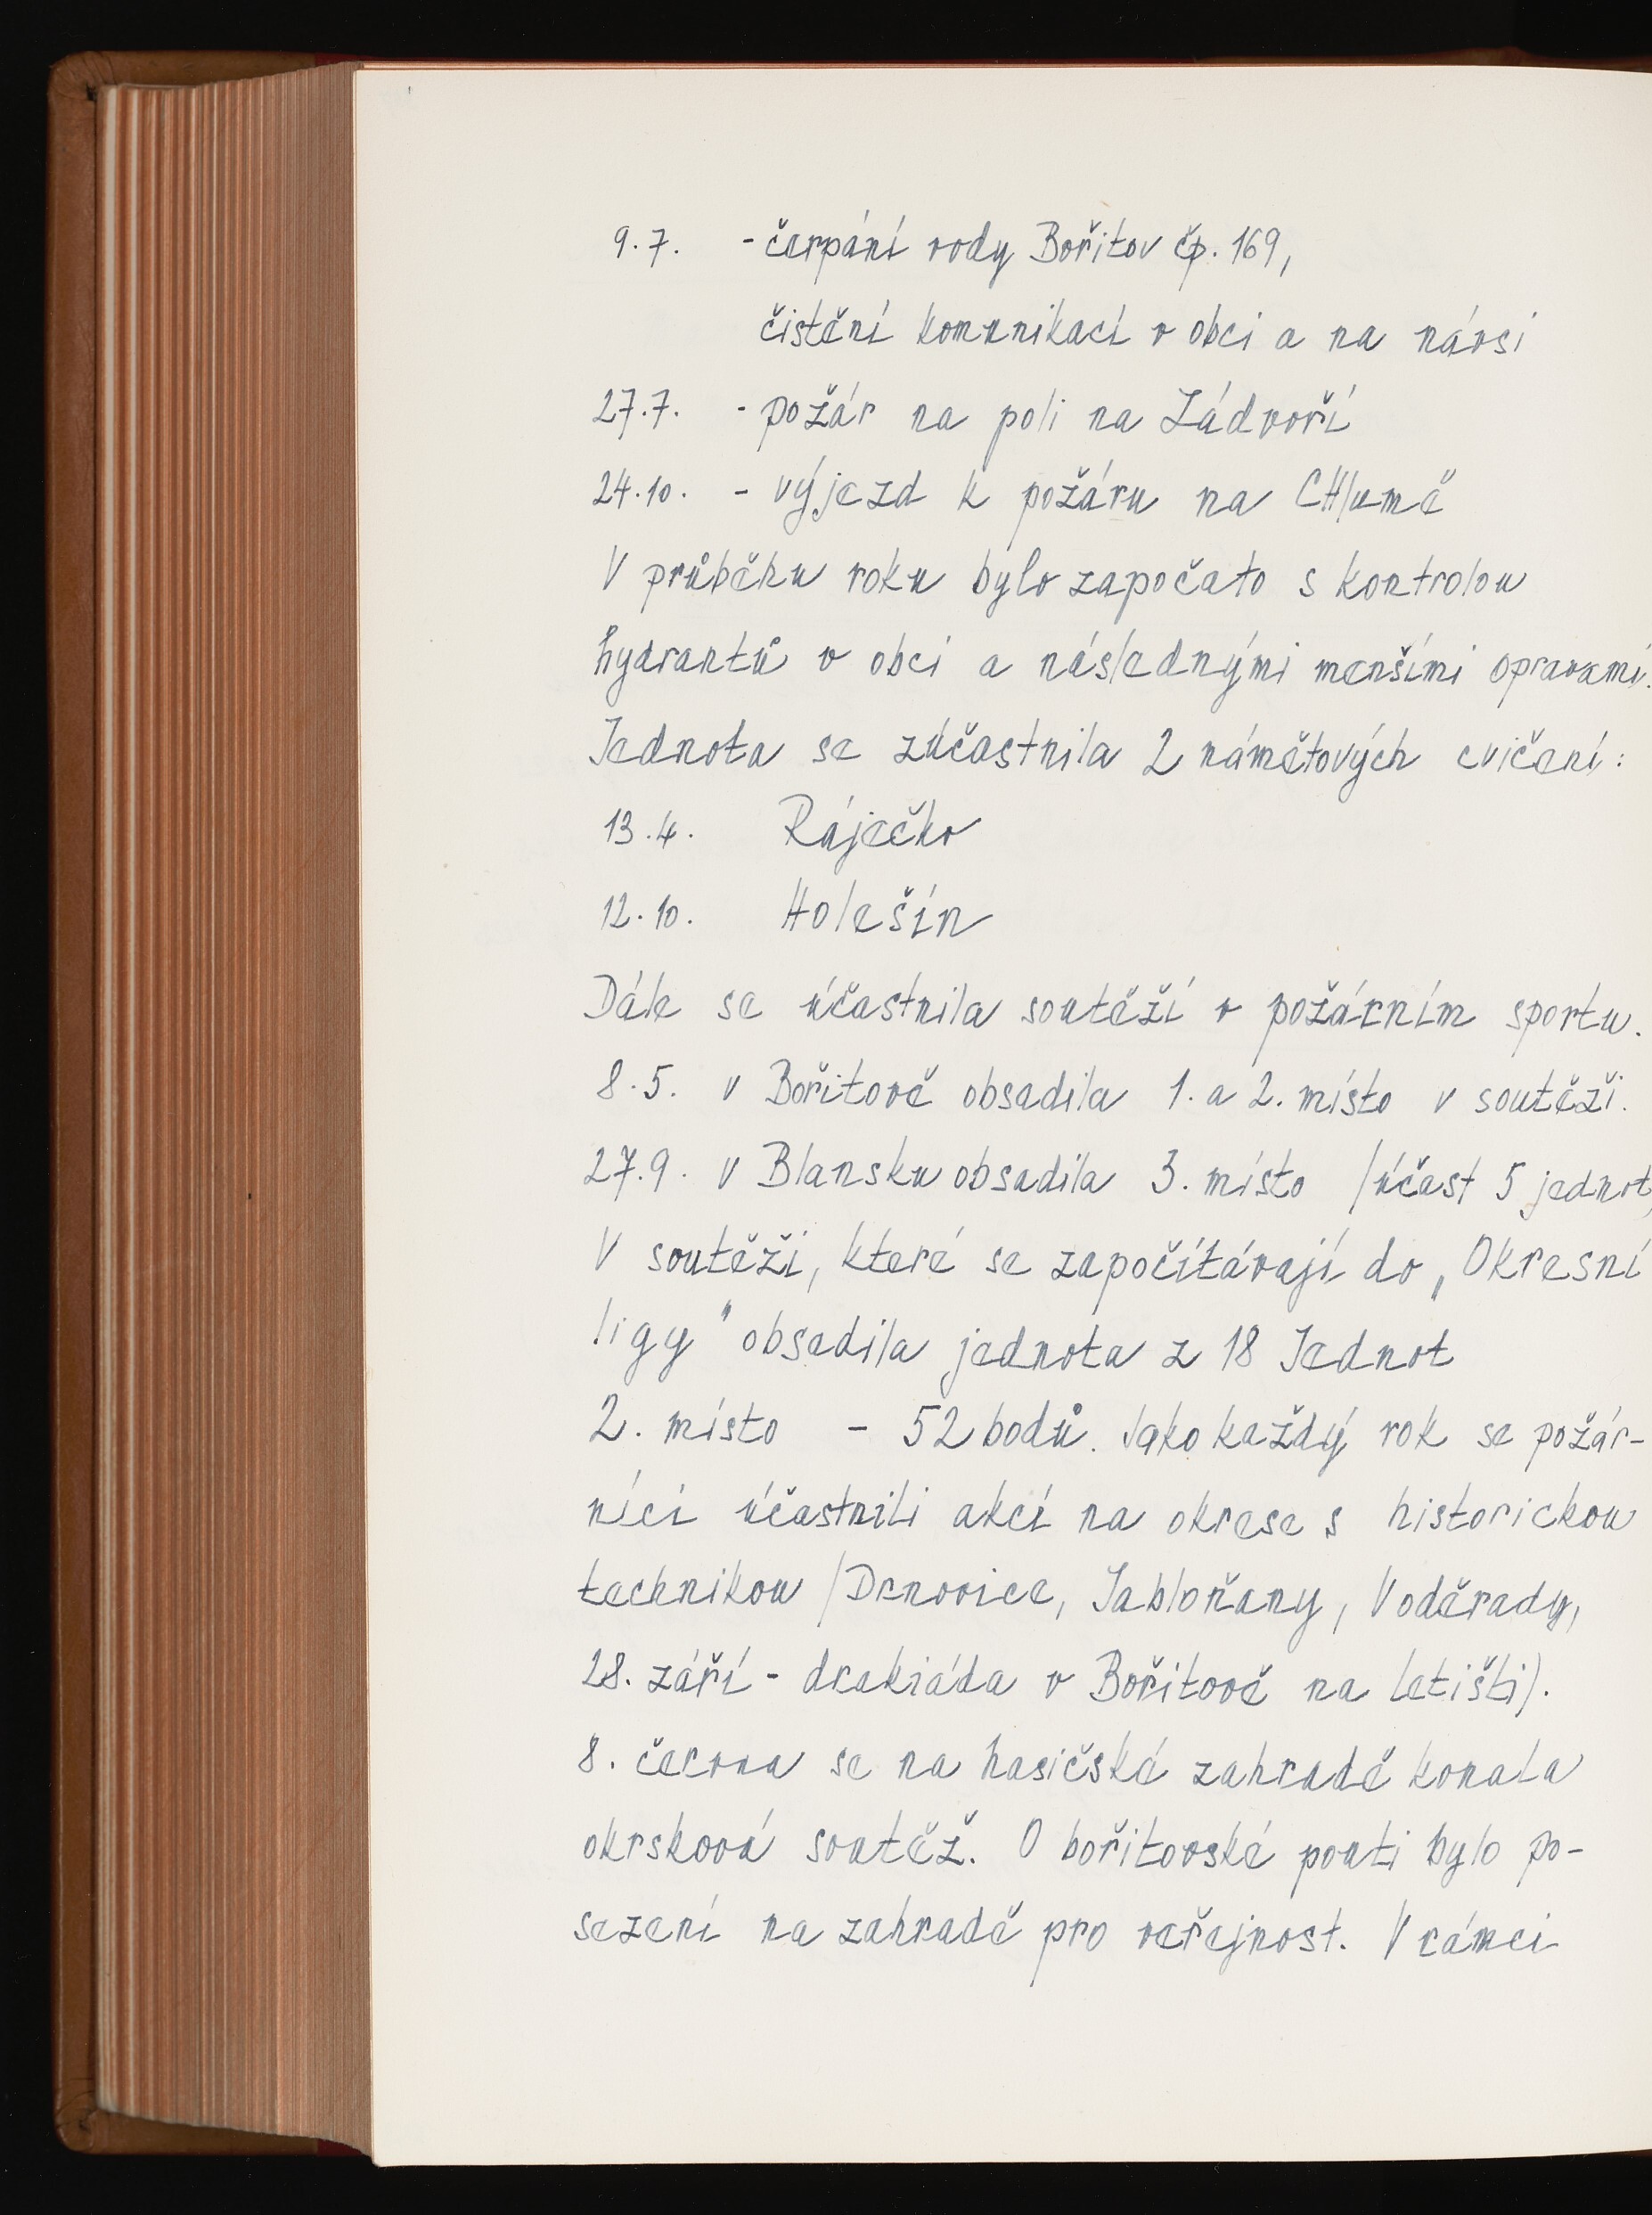 9.7. - čerpání vody Bořitov čp. 169,
čistění komunikací v obci a na návsi
27.7. - požár na poli na Zádvoří
24.10. - výjezd k požáru na CHlumě
V průběhu roku bylo započato s kontrolou
hydrantů v obci a následnými menšími opravami.
Jednota se zúčastnila 2 námětových cvičení:
13.4. Ráječko
12.10. Holešín
Dále se účastnila soutěží v požárním sportu.
8.5. v Bořitově obsadila 1. a 2. místo v soutěži.
27.9. v Blansku obsadila 3. místo /účast 5 jednot/
V soutěži, které se započítávají do „Okresní
ligy" obsadila jednota z 18 Jednot
2. místo - 52 bodů. Jako každý rok se požár-
níci účastnili akcí na okrese s historickou
technikou /Drnovice, Jabloňany, Voděrady,
28. září - drakiáda v Bořitově na letišti).
8. června se na hasičské zahradě konala
okrsková soutěž. O bořitovské pouti bylo po-
sezení na zahradě pro veřejnost. V rámci